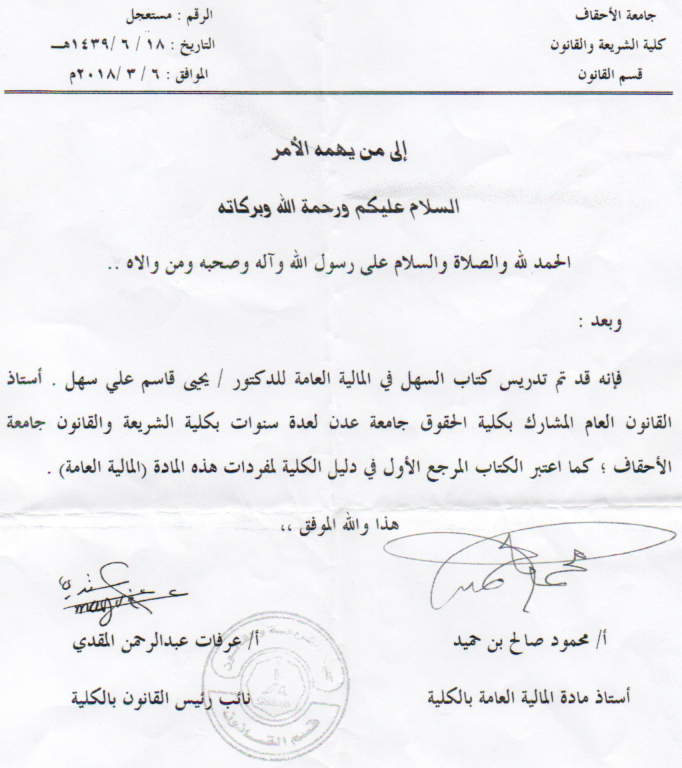 جامعة الأحقاف
كلية الشريعة والقانون
قسم القانون
الرقم : مستعجل
التاريخ : ١٨ / ٦ /١٤٣٩هـ
الموافق : ٦ / ٣ /٢٠١٨م
إلى من يهمه الأمر
السلام عليكم ورحمة الله وبركاته
الحمد لله والصلاة والسلام على رسول الله وآله وصحبه ومن والاه ..
وبعد :
فإنه قد تم تدريس كتاب السهل في المالية العامة للدكتور / يحيى قاسم علي سهل . أستاذ
القانون العام المشارك بكلية الحقوق جامعة عدن لعدة سنوات بكلية الشريعة والقانون جامعة
الأحقاف ؛ كما اعتبر الكتاب المرجع الأول في دليل الكلية لمفردات هذه المادة (المالية العامة) .
هذا والله الموفق ،،
أ/ محمود صالح بن حميد
أستاذ مادة المالية العامة بالكلية
أ/ عرفات عبدالرحمن المقدي
نائب رئيس القانون بالكلية
قسم القانون